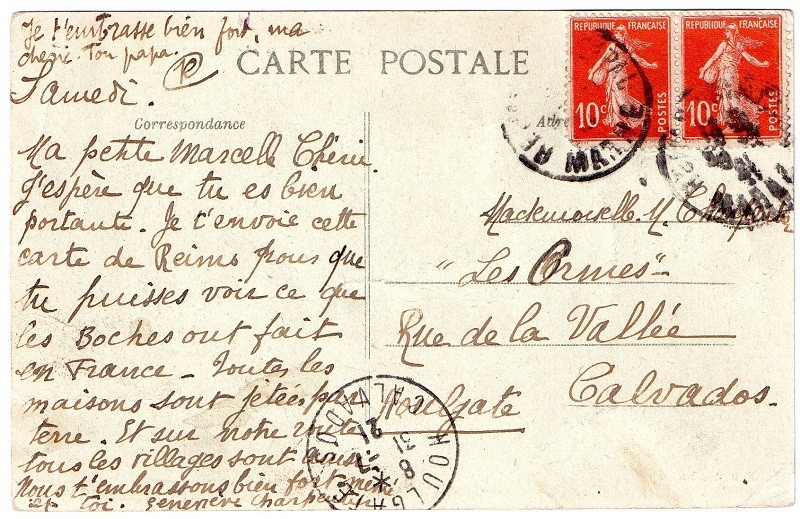 Je t'embrasse bien fort, ma
chérie. Ton papa.
CARTE POSTALE
Samedi.
Correspondance
Ma petite Marcelle Chérie
J'espère que tu es bien
portante. Je t'envoie cette
carte de Reims pour que
tu puisses voir ce que
les Boches ont fait
en France - Toutes les
maisons sont jetées par
terre. Et sur notre route
tous les villages sont ainsi
Nous t'embrassons bien fort
et toi. Geneviève Charpentier
REPUBLIQUE FRANÇAISE
10c POSTES
REPUBLIQUE FRANÇAISE
10c POSTES
Mademoiselle M. Charpentier
"Les Ormes"
Rue de la Vallée
Houlgate
Calvados
HOULGATE
CALVADOS
31
8
21